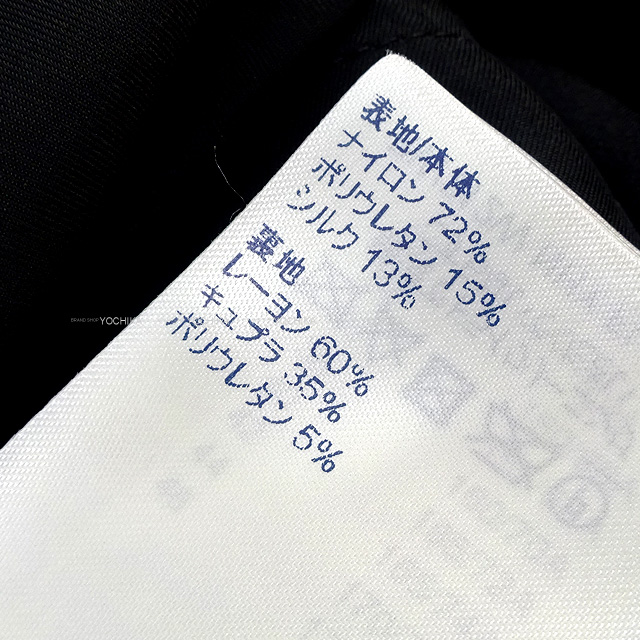 表地/本体
ナイロン 72%
ポリウレタン 15%
シルク 13%
裏地
レーヨン 60%
キュプラ 35%
ポリウレタン 5%
BRAND SHOP YOCHI